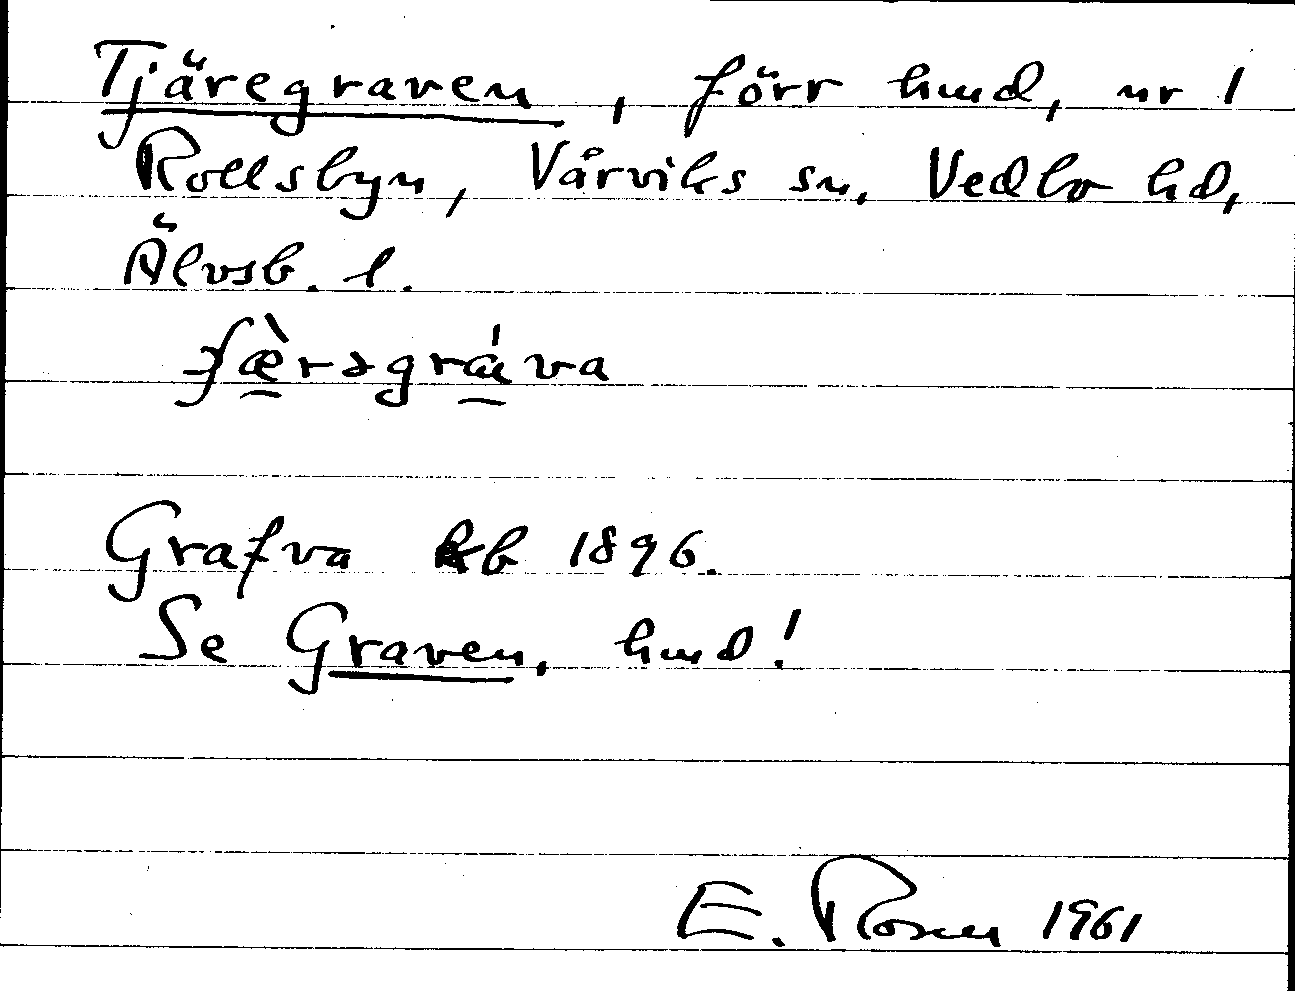 Tjäregraven, förr hmd, nr 1
Rollsbyn, Vårviks sn, Vedbo hd,
Älvsb. l.
ʃæ̀rəgrává
Grafva kb 1896.
Se Graven, hmd!
E. Rosen 1961